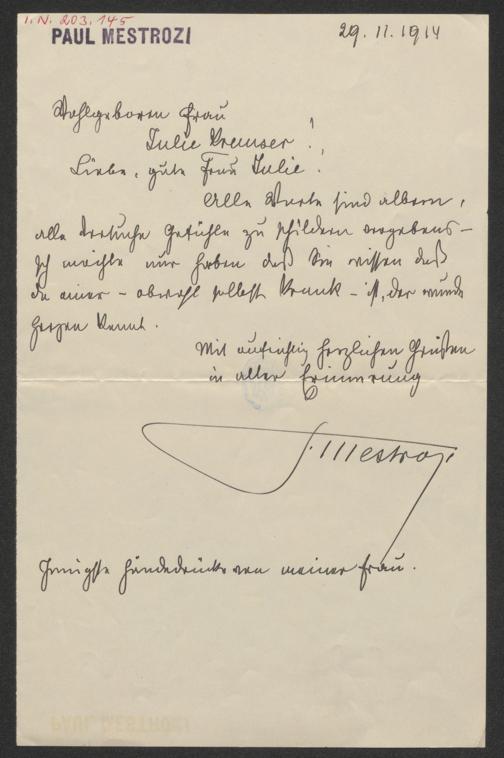 I.N. 203.145
PAUL MESTROZI
29. 11. 1914
Wohlgeboren Frau
Julie Kremser!
Liebe, gute Frau Julie!
Alle Worte sind albern,
alle Versuche Gefühle zu schildern vergebens –
Ich möchte nur haben daß Sie wissen daß
da einer – obwohl selbst krank – ist, der wunde
Herzen kennt.
Mit aufrichtig herzlichen Grüßen
in alter Erinnerung
P. Mestrozi
Innigste Händedrücke von meiner Frau.